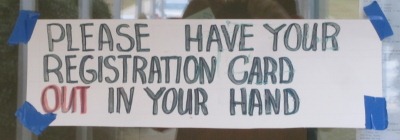 PLEASE HAVE YOUR
REGISTRATION CARD
OUT IN YOUR HAND